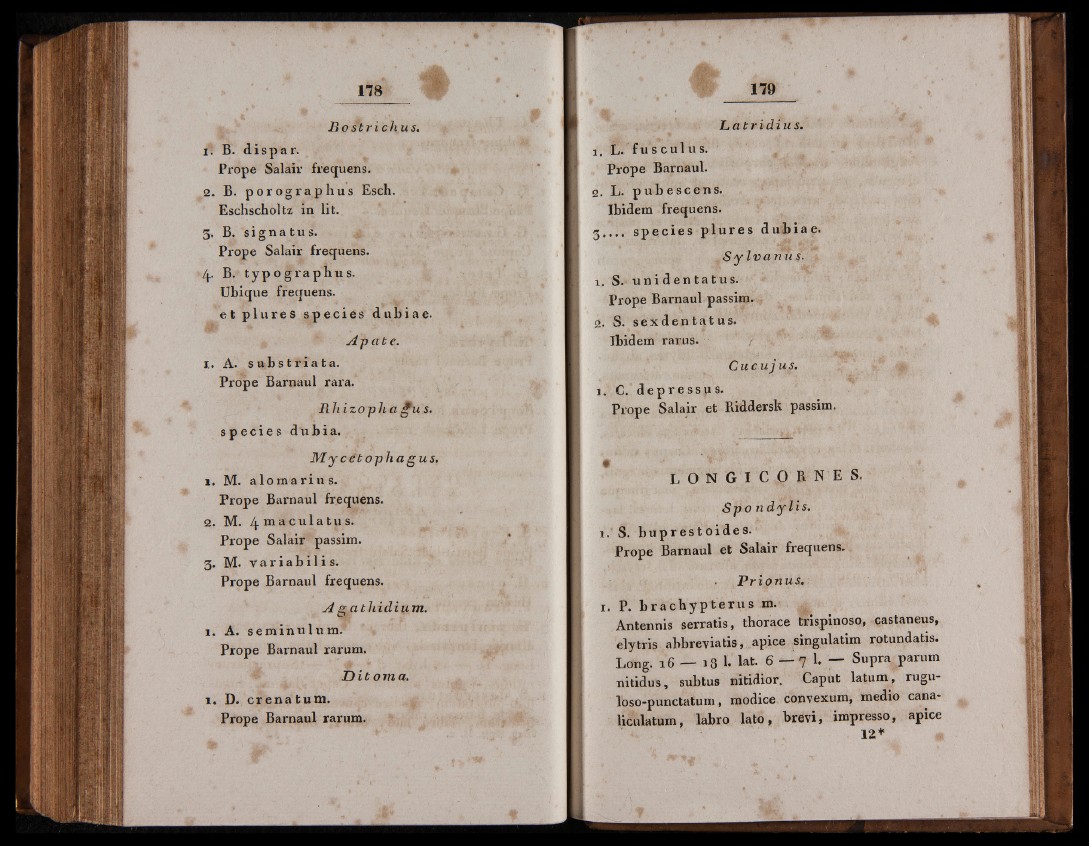 178
Bostrichus.
1. B. dispar.
Prope Salair frequens.
2. B. porographus Esch.
Eschscholtz in lit.
3. B. signatus.
Prope Salair frequens.
4. B. typographus.
Ubique frequens.
et plures species dubiae.
Apate.
1. A. substriata.
Prope Barnaul rara.
Rhizophagus.
species dubia.
Mycetophagus.
1. M. alomarius.
Prope Barnaul frequens.
2. M. 4maculatus.
Prope Salair passim.
3. M. variabilis.
Prope Barnaul frequens.
Agathidium.
1. A. seminulum.
Prope Barnaul rarum.
Ditoma.
1. D. crenatum.
Prope Barnaul rarum.
179
Latridius.
1. L. fusculus.
Prope Barnaul.
2. L. pubescens.
Ibidem frequens.
3.... species plures dubiae.
Sylvanus.
1. S. unidentatus.
Prope Barnaul passim.
2. S. sexdentatus.
Ibidem rarus.
Cucujus.
1. C. depressus.
Prope Salair et Riddersk passim.
LONGICORNES.
Spondylis.
1. S. buprestoides.
Prope Barnaul et Salair frequens.
Prionus.
1. P. brachypterus m.
Antennis serratis, thorace trispinoso, castaneus,
elytris abbreviatis, apice singulatim rotundatis.
Long. 16 — 13 l. lat. 6 — 7 l. — Supra parum
nitidus, subtus nitidior. Caput latum, rugu-
loso-punctatum, modice convexum, medio cana-
liculatum, labro lato, brevi, impresso, apice
12*